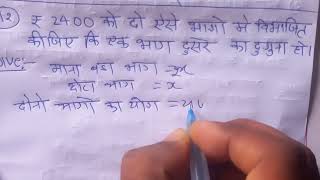 12) ₹ 2400 को दो ऐसे भागो मे विभाजित
कीजिए कि एक भाग दुसरे का दुगुना हो।
माना बडा भाग = 2x
छोटा भाग = x
दोनो भागो का योग =